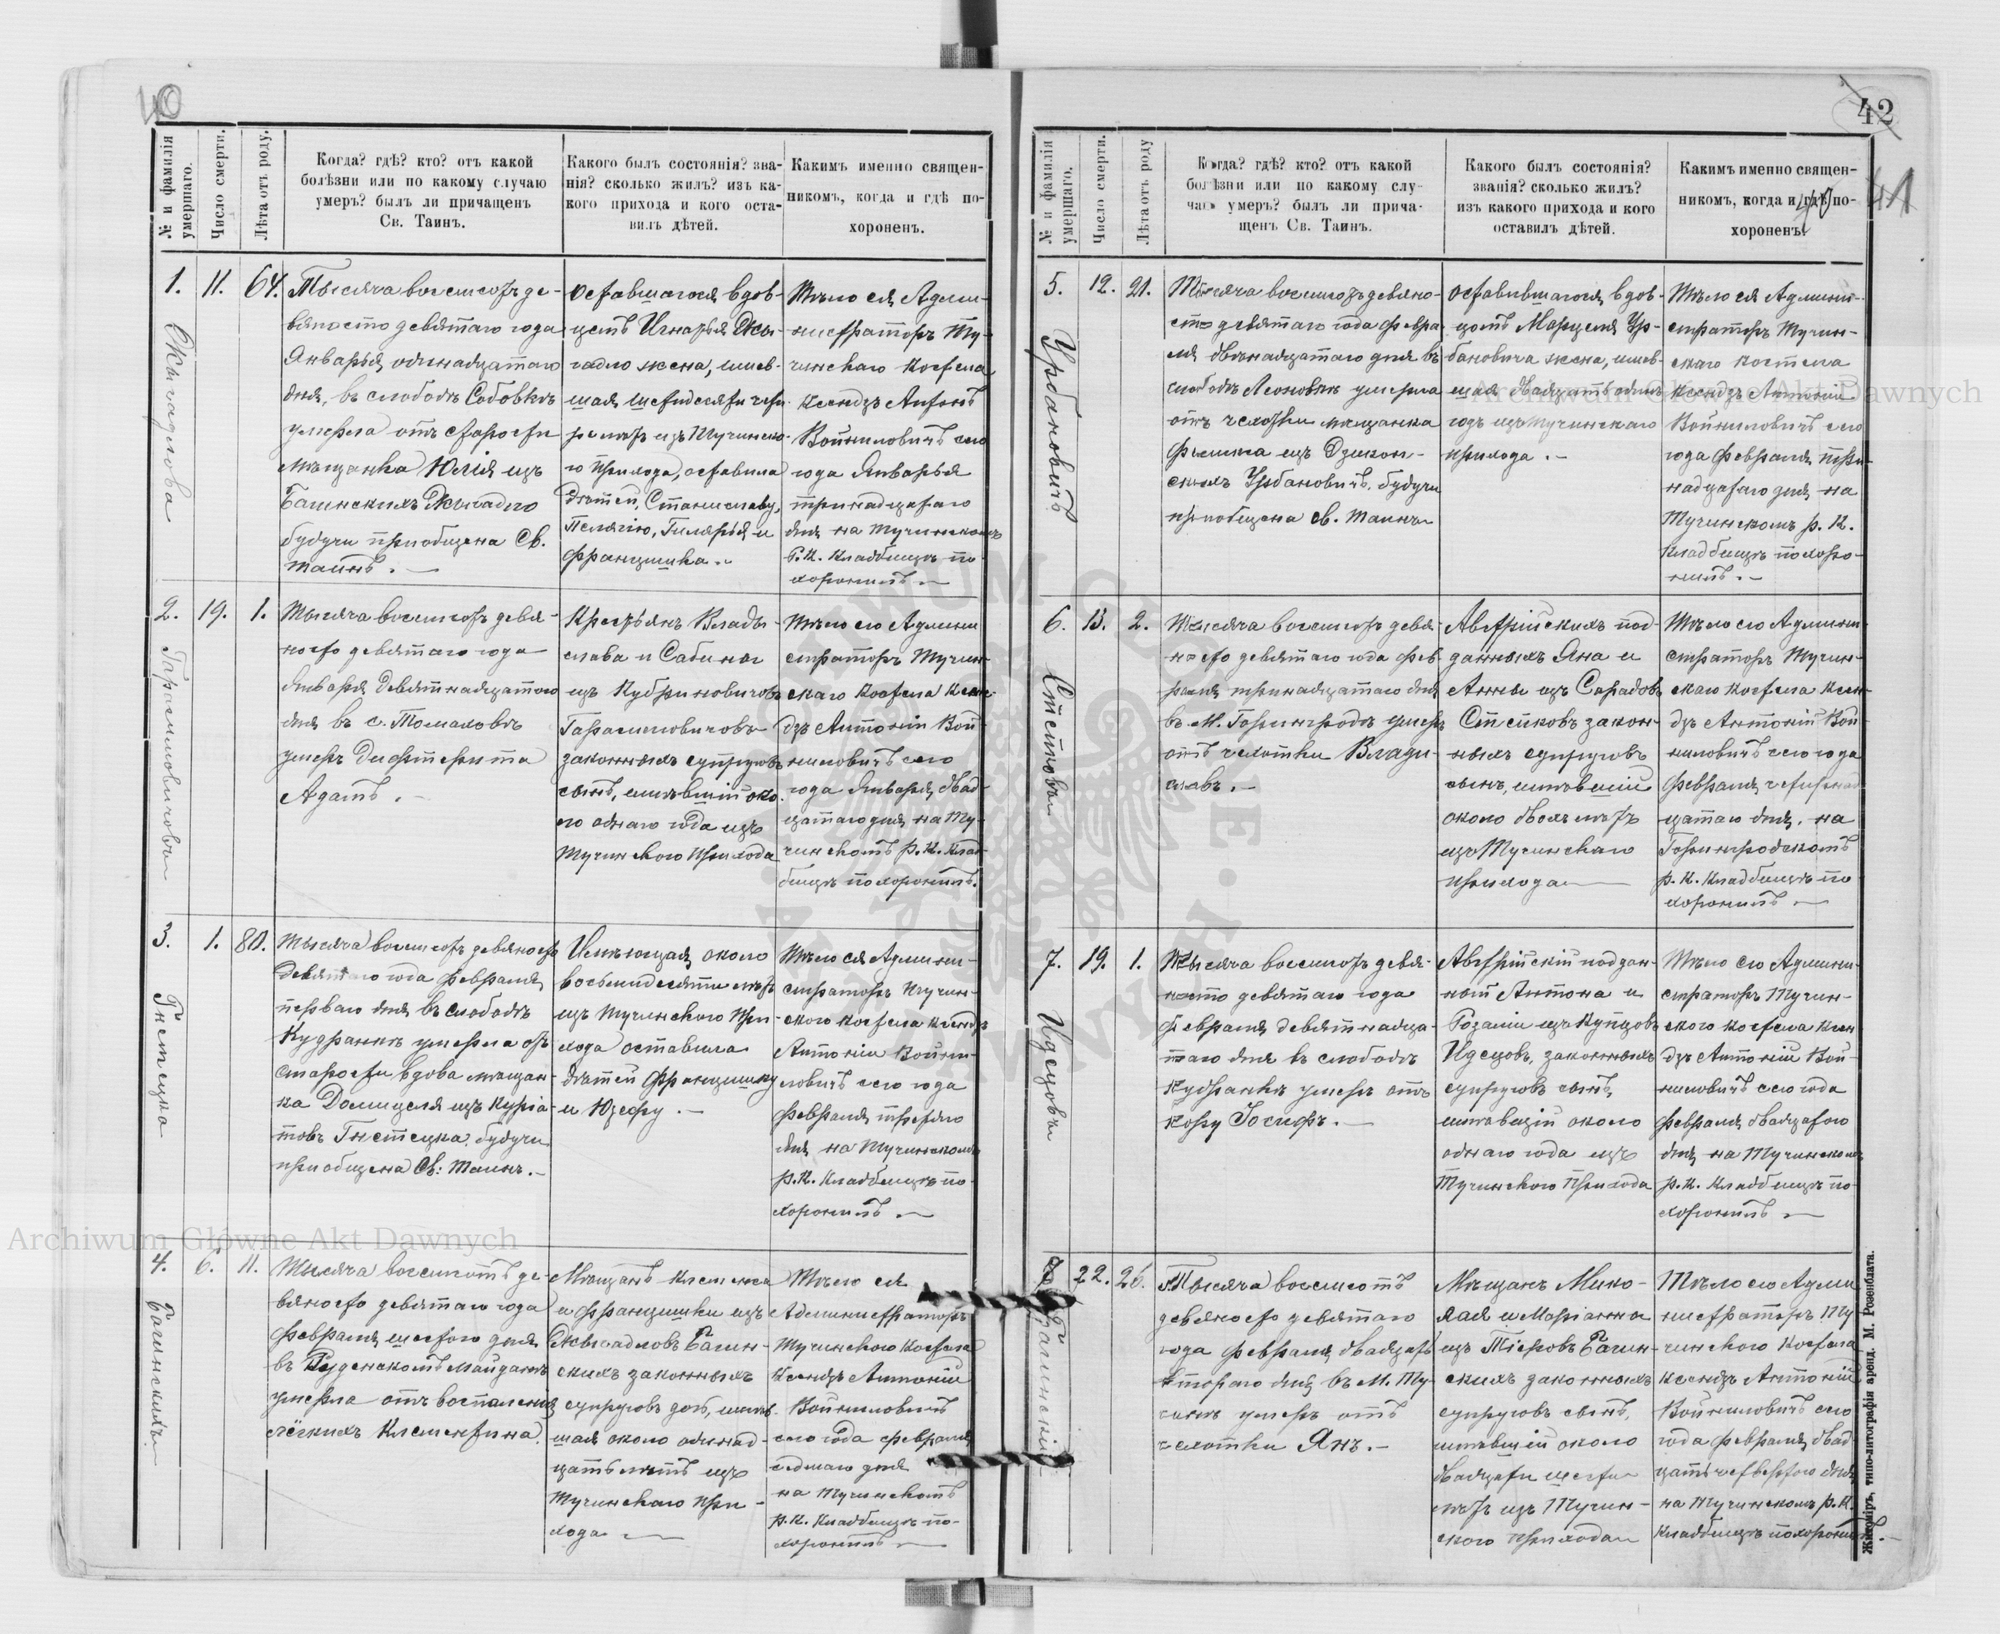 40
№ и фамилія умершаго.
Число смерти.
Лѣта отъ роду.
Когда? гдѣ? кто? отъ какой
болѣзни или по какому случаю
умеръ? былъ ли причащенъ
Св. Таинъ.
Какого былъ состоянія? зва-
нія? сколько жилъ? изъ ка-
кого прихода и кого оста-
вилъ дѣтей.
Какимъ именно священ-
никомъ, когда и гдѣ по-
хороненъ.
1.
11.
64.
Тысяча восемьсотъ де-
вяносто девятаго года
Января одинадцатаго
дня, въ слободѣ Собовкѣ
умерла отъ старости
мѣщанка Юлія изъ
Багинскихъ
будучи приобщена Св.
таинъ. —
оставшагося вдов-
цемъ Игнатія
жена, имев-
шая шестдесяти четы
ре изъ Тучинска-
го прихода, оставила
дѣтей, Станиславу,
Пелагію, Гилярія и
Францишка.
Тѣло ея Адми-
нистраторъ Ту-
чинскаго костела
Ксендзъ Антоній
Войниловичъ сего
года Января
тринадцатаго
дня на Тучинскомъ
Р. К. Кладбищѣ по-
хоронилъ. —
2.
19.
1.
Тысяча восемьсотъ девя-
носто девятаго года
Января девятнадцатого
дня въ с. Томаховѣ
умеръ Дифтерита
Адамъ. —
Крестьянъ Влади-
слава и Сабины
изъ Кубриновичовъ
Герасимовичовъ
законныхъ супруговъ
сынъ, имѣвшій око-
ло однаго года изъ
Тучинского прихода
Тѣло его Админи
страторъ Тучин-
скаго костела Ксен-
дзъ Антоній Вой-
ниловичъ сего
года Января двад-
цатаго дня на Ту-
чинскомъ р. К. Клад-
бищѣ похоронилъ.
3.
1.
80.
Тысяча восемьсотъ девяносто
девятаго года Февраля
перваго дня въ слободѣ
Кудранкѣ умерла отъ
старости вдова мѣщан-
ка Домицеля изъ
Гнетецка будучи
приобщена Св: Таинъ. —
Имѣющая около
восьмидесяти лѣтъ
изъ Тучинского при-
хода оставила
дѣтей Францишку
и Юзефу. —
Тѣло ея Админи-
страторъ Тучин-
ского костела Ксендзъ
Антоній Войни-
ловичъ сего года
Февраля третяго
дня на Тучинскомъ
р. К. Кладбищѣ по-
хоронилъ —
4.
6.
11.
Багинскихъ
Тысяча восемьсотъ де-
вяносто девятаго года
Февраля шестого дня
въ Руденскомъ Майданѣ
умерла отъ воспаленія
лёгкихъ Клементина.
Мѣщанъ Клеменса
и Францишки изъ
Багин-
скихъ законныхъ
супруговъ дочь, имѣв-
шая около одинад-
цать лѣтъ изъ
Тучинскаго при-
хода —
Тѣло ея
Администраторъ
Тучинского Костела
Ксендзъ Антоній
Войниловичъ
сего года Февраля
седмаго дня
на Тучинскомъ
р. К. Кладбищѣ по-
хоронилъ —
42
41
№ и фамилія умершаго.
Число смерти.
Лѣта отъ роду
Когда? гдѣ? кто? отъ какой
болѣзни или по какому слу-
чаю умеръ? былъ ли прича-
щенъ Св. Таинъ.
Какого былъ состоянія?
званія? сколько жилъ?
изъ какого прихода и кого
оставилъ дѣтей.
Какимъ именно священ-
никомъ, когда и гдѣ по-
хороненъ.
5.
12.
21.
Урбановичъ
Тысяча восемьсотъ девяно-
сто девятаго года Февра
ля двѣнадцатаго дня въ
слободѣ Леоновкѣ умерла
отъ чехотки мѣщанка
изъ
Урбановичъ, будучи
приобщена св. Таинъ
оставившагося вдов-
цомъ Марцеля Ур-
бановича жена, имев-
шая двадцать одинъ
годъ изъ Тучинскаго
прихода. —
Тѣло ея Админи-
страторъ Тучин-
скаго костела
Ксендзъ Антоній
Войниловичъ сего
года Февраля трин-
надцатаго дня на
Тучинскомъ р. К.
Кладбищѣ похоро-
нилъ. —
6.
13.
2.
Тысяча восемьсотъ девя-
носто девятаго года Фев-
раля тринадцатаго дня
въ М. Горынгродѣ умеръ
отъ чехотки Влади-
славъ. —
Австрійскихъ под-
данныхъ Яна и
Анны изъ Сорадовъ
закон-
ныхъ супруговъ
сынъ, имѣвшій
около двохъ лѣтъ
изъ Тучинскаго
прихода —
Тѣло его Админи-
страторъ Тучин-
скаго костела Ксен-
дзъ Антоній Вой-
ниловичъ сего года
Февраля четырнад-
цатаго дня, на
Горынгродскомъ
р. К. Кладбищѣ по
хоронилъ —
7.
19.
1.
Идецовъ
Тысяча восемьсотъ девя-
носто девятаго года
Февраля девятнадца-
таго дня въ слободѣ
Кудранкѣ умеръ отъ
кору Іосифъ. —
Австрійскій поддан-
ный Антона и
Розаліи изъ Купцовъ
Идецовъ, законныхъ
супруговъ сынъ,
имѣвшій около
однаго года изъ
Тучинского прихода
Тѣло его Админи-
страторъ Тучин-
ского костела Ксен
дзъ Антоній Вой-
ниловичъ сего года
Февраля двадцатого
дня на Тучинскомъ
р. К. Кладбищѣ по-
хоронилъ —
22.
26.
Багинскій
Тысяча восемьсотъ
девяносто девятаго
года Февраля двадцать
втораго дня въ М. Ту-
чинѣ умеръ отъ
чехотки Янъ. —
Мѣщанъ Мико-
лая и Маріанна
изъ Багин-
скихъ законныхъ
супруговъ сынъ,
имѣвшій около
двадцати шести
лѣтъ изъ Тучин-
ского прихода
Тѣло его Адми
нистраторъ Ту-
чинского Костела
Ксендзъ Антоній
Войниловичъ сего
года Февраля двад-
цать четвертого дня
на Тучинскомъ р. К.
Кладбищѣ похоронилъ. —
Житоміръ, типо-литографія аренд. М. Розенблата.
Archiwum Główne Akt Dawnych
Archiwum Główne Akt Dawnych